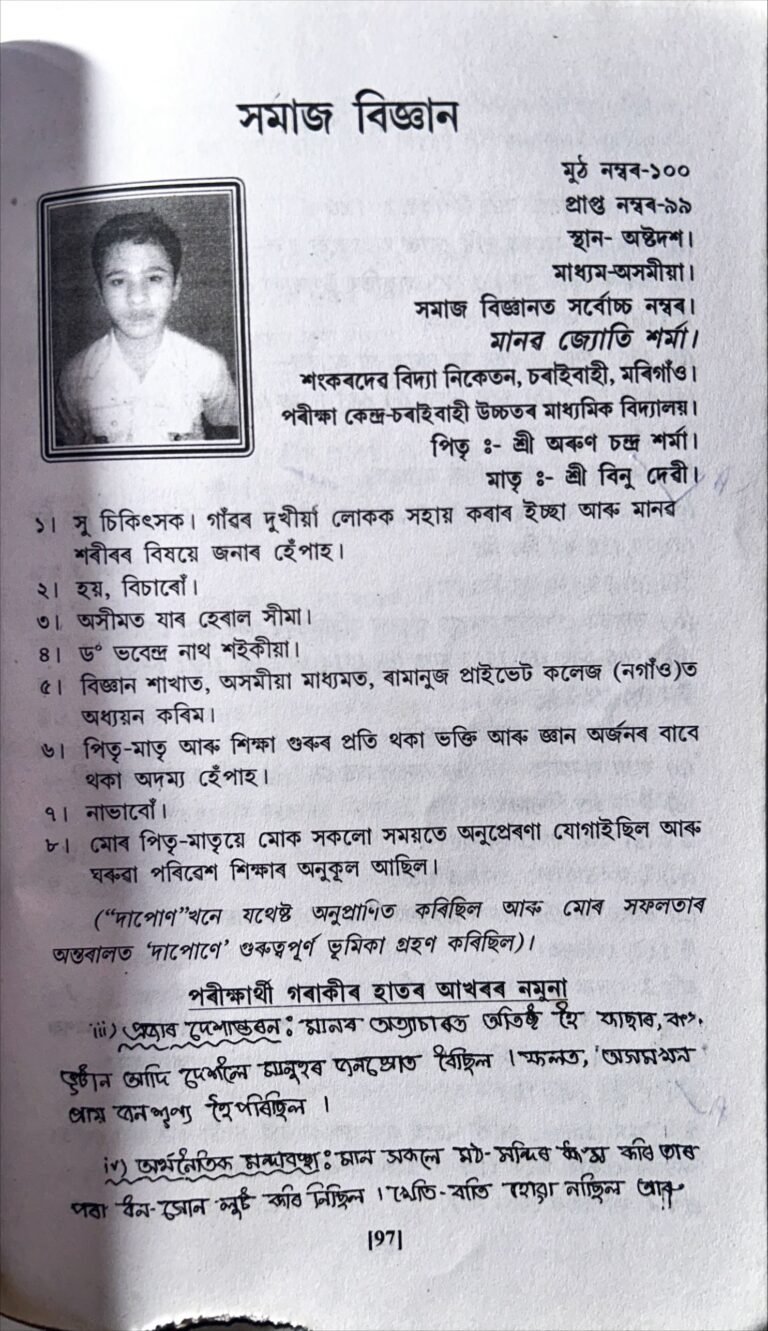 সমাজ বিজ্ঞান
মুঠ নম্বৰ-১০০
প্ৰাপ্ত নম্বৰ-৯৯
স্থান- অষ্টদশ।
মাধ্যম-অসমীয়া।
সমাজ বিজ্ঞানত সৰ্বোচ্চ নম্বৰ।
মানৱ জ্যোতি শৰ্মা।
শংকৰদেৱ বিদ্যা নিকেতন, চৰাইবাহী, মৰিগাঁও।
পৰীক্ষা কেন্দ্ৰ-চৰাইবাহী উচ্চতৰ মাধ্যমিক বিদ্যালয়।
পিতৃ ঃ- শ্ৰী অৰুণ চন্দ্ৰ শৰ্মা।
মাতৃ ঃ- শ্ৰী বিনু দেৱী।
১। সু চিকিৎসক। গাঁৱৰ দুখীয়া লোকক সহায় কৰাৰ ইচ্ছা আৰু মানৱ
শৰীৰৰ বিষয়ে জনাৰ হেঁপাহ।
২। হয়, বিচাৰোঁ।
৩। অসীমত যাৰ হেৰাল সীমা।
৪। ড° ভবেন্দ্ৰ নাথ শইকীয়া।
৫। বিজ্ঞান শাখাত, অসমীয়া মাধ্যমত, ৰামানুজ প্ৰাইভেট কলেজ (নগাঁও)ত
অধ্যয়ন কৰিম।
৬। পিতৃ-মাতৃ আৰু শিক্ষা গুৰুৰ প্ৰতি থকা ভক্তি আৰু জ্ঞান অৰ্জনৰ বাবে
থকা অদম্য হেঁপাহ।
৭। নাভাবোঁ।
৮। মোৰ পিতৃ-মাতৃয়ে মোক সকলো সময়তে অনুপ্ৰেৰণা যোগাইছিল আৰু
ঘৰুৱা পৰিৱেশ শিক্ষাৰ অনুকূল আছিল।
("দাপোণ"খনে যথেষ্ট অনুপ্ৰাণিত কৰিছিল আৰু মোৰ সফলতাৰ
অন্তৰালত 'দাপোণে' গুৰুত্বপূৰ্ণ ভূমিকা গ্ৰহণ কৰিছিল)।
পৰীক্ষাৰ্থী গৰাকীৰ হাতৰ আখৰৰ নমুনা
iii) প্ৰজাৰ দেশান্তৰন: মানৰ অত্যাচাৰত অতিষ্ঠ হৈ কাছাৰ,
ভূটান আদি দেশলৈ মানুহৰ জনস্ৰোত বৈছিল। ফলত, অসমখন
প্ৰায় জনশূণ্য হৈ পৰিছিল।
iv) অৰ্থনৈতিক মন্দাৱস্থা: মান সকলে মঠ-মন্দিৰ ধ্বংস কৰি তাৰ
পৰা ধন-সোন লুট কৰি নিছিল। খেতি-বাতি হোৱা নাছিল আৰু
|97|